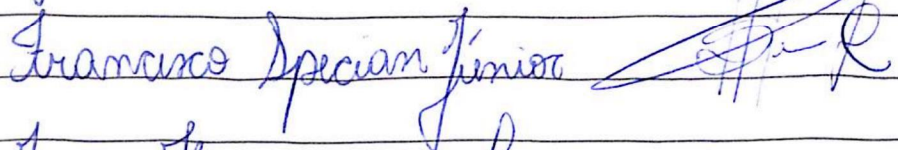 Francisco Specian Júnior